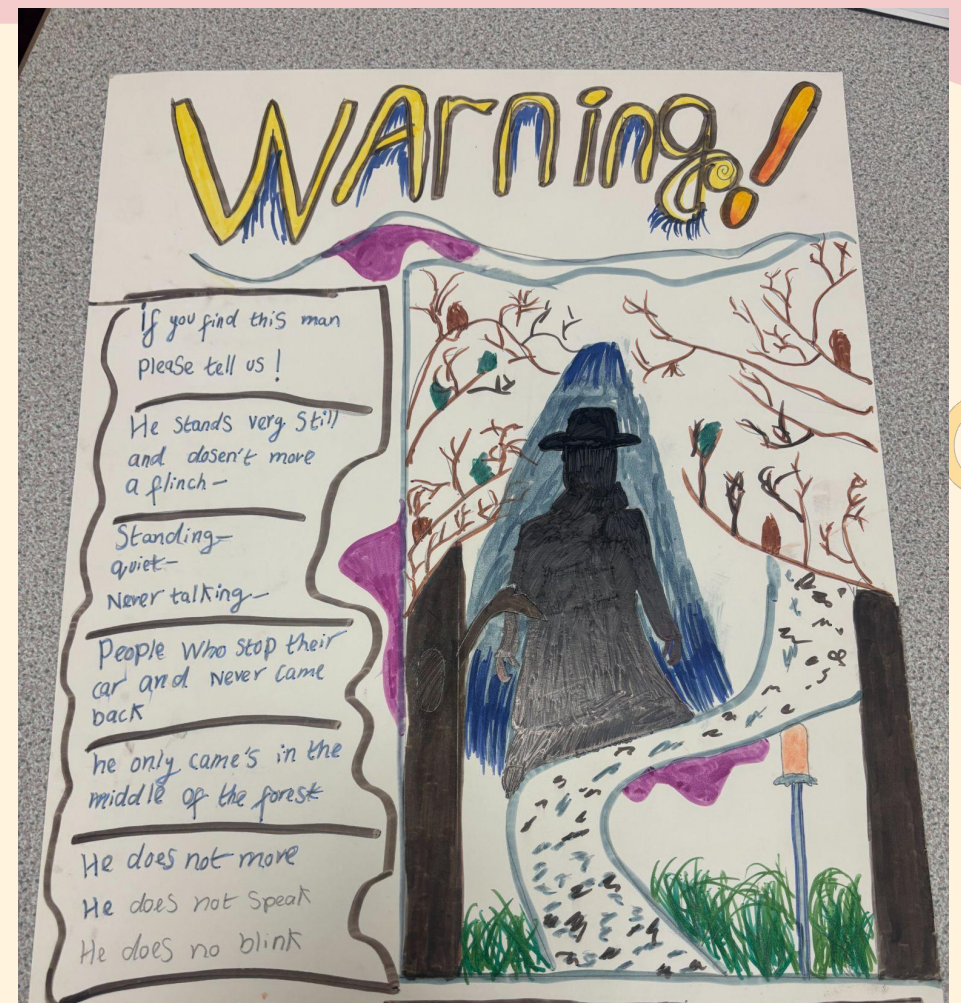 WArning!
if you find this man
please tell us!
He stands very Still
and dosen't more
a flinch-
Standing-
quiet-
Never talking-
People who stop their
car and never came
back
he only came's in the
middle of the forest
He does not move
He does not speak
He does no blink